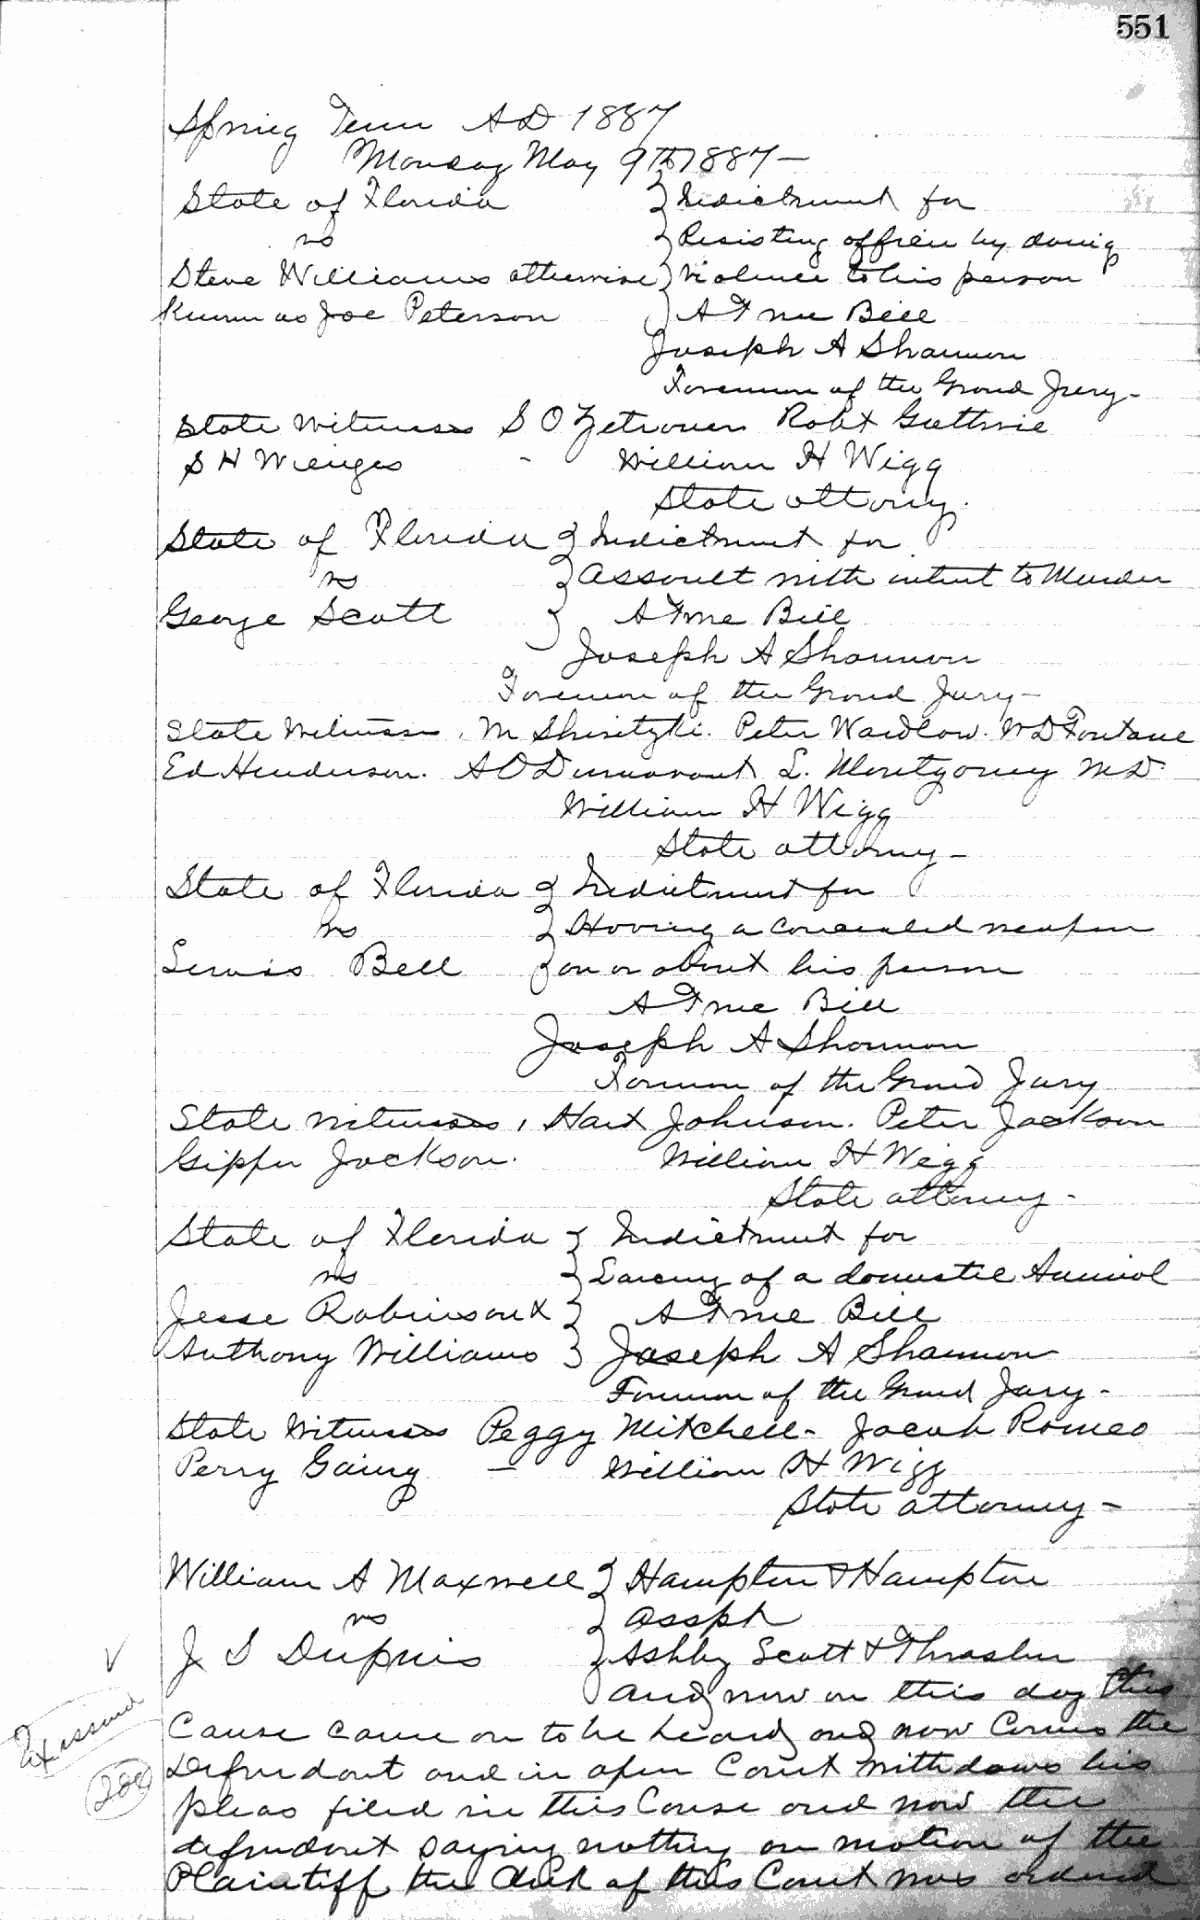 551
Spring Term AD 1887
Monday May 9th 1887 —
State of Florida } Indictment for
vs } Resisting officer by doing
Steve Williams otherwise } violence to his person
Known as Joe Peterson } A True Bill
Joseph A Shannon
Foreman of the Grand Jury -
State witnesses S O Zetrouer Robt Guthrie
S H Wienges - William H Wigg
State attorney.
State of Florida } Indictment for
vs } assault with intent to Murder
George Scott } A True Bill
Joseph A Shannon
Foreman of the Grand Jury -
State Witnesses, M Peter Wardlow. W D Fontane
Ed Henderson. A O L. Montgomery M.D.
William H Wigg
State attorney -
State of Florida } Indictment for
vs } Having a concealed weapon
Lewis Bell } on or about his person
A True Bill
Joseph A Shannon
Foreman of the Grand Jury
State witnesses, Hart Johnson. Peter Jackson
Jackson. William H Wigg
State attorney -
State of Florida } Indictment for
vs } Larceny of a domestic Animal
Jesse Robinson & } A True Bill
Anthony Williams } Joseph A Shannon
Foreman of the Grand Jury -
State Witnesses Peggy Mitchell - Jacob Romeo
Perry Gainy — William H Wigg
State attorney -
William A Maxwell } Hampton & Hampton
vs } asspt
J S Dupuis } Ashby Scott & Thrasher
and now on this day this
Cause came on to be heard and now Comes the
Defendant and in open Court withdraws his
pleas filed in this Cause and now the
defendant saying nothing on motion of the
Plaintiff the Clerk of this Court was ordered